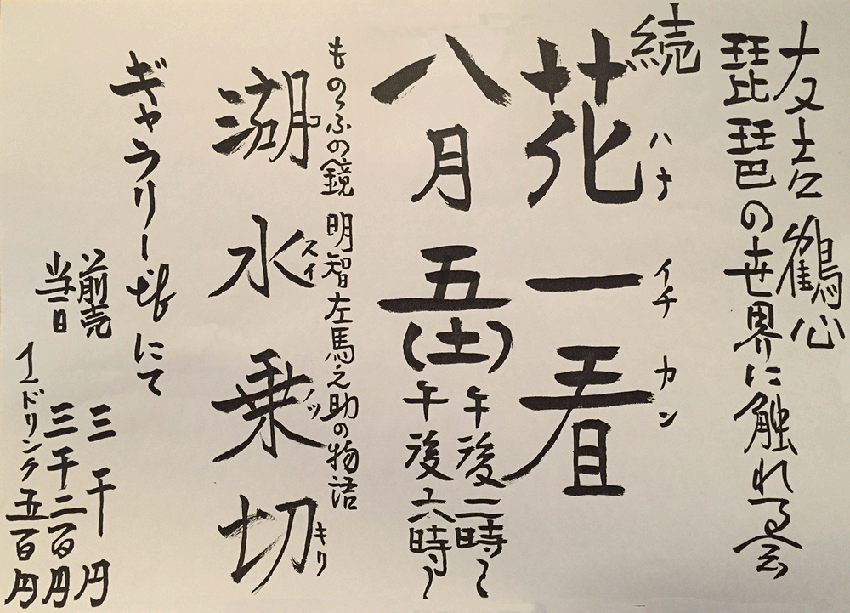 友吉鶴心
琵琶の世界に触れる会
続
花一看
ハナ イチ カン
八月五(土)
午後二時〜
午後六時〜
ものゝふの鏡 明智左馬之助の物語
湖水乗切
コ スイ ノッ キリ
ギャラリー にて
前売 三千円
当日 三千二百円
1ドリンク五百円